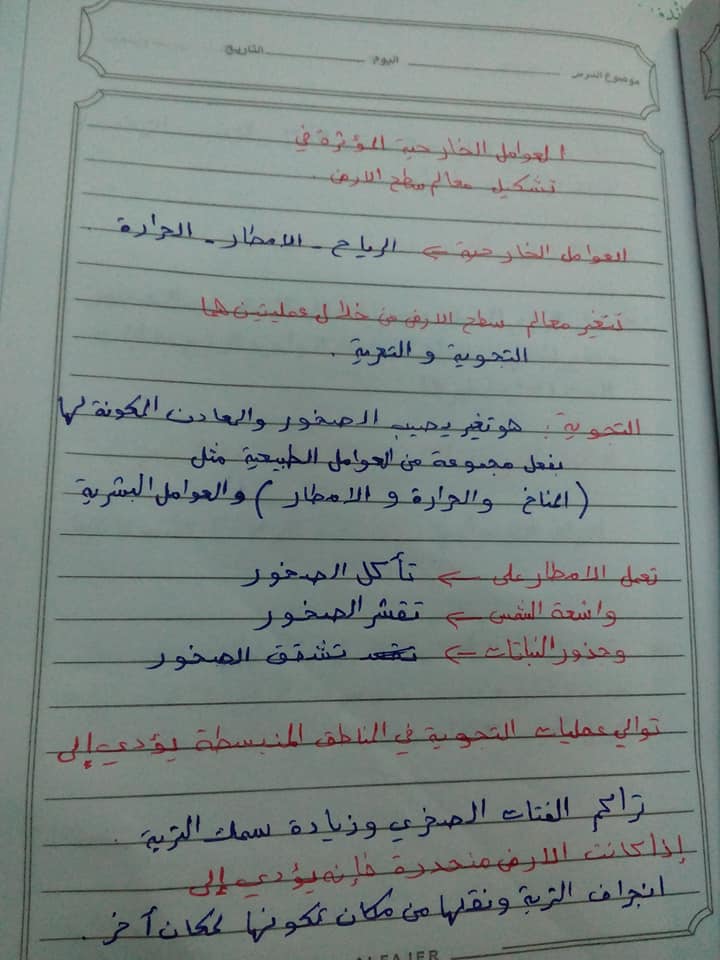 موضوع الدرس ـــــــ اليوم ـــــــ التاريخ ـــــــ
العوامل الخارجية المؤثرة في
تشكيل معالم سطح الارض .
العوامل الخارجية ← الرياح - الامطار - الحرارة .
تتغير معالم سطح الارض من خلال عمليتين هما
التجوية و التعرية .
التجوية : هو تغير يصيب الصخور والمعادن المكونة لها
بفعل مجموعة من العوامل الطبيعية مثل
(المناخ والحرارة و الامطار) والعوامل البشرية
تعمل الامطار على ← تأكل الصخور
واشعة الشمس ← تقشر الصخور
وجذور النباتات ← تشقق الصخور
توالي عمليات التجوية في الناطق المنبسطة يؤدي إلى
تراكم الفتات الصخري وزيادة سمك التربة .
إذا كانت الارض منحدرة فإنه يؤدي إلى
انجراف التربة ونقلها من مكان تكونها لمكان أخر .
ALFAJER